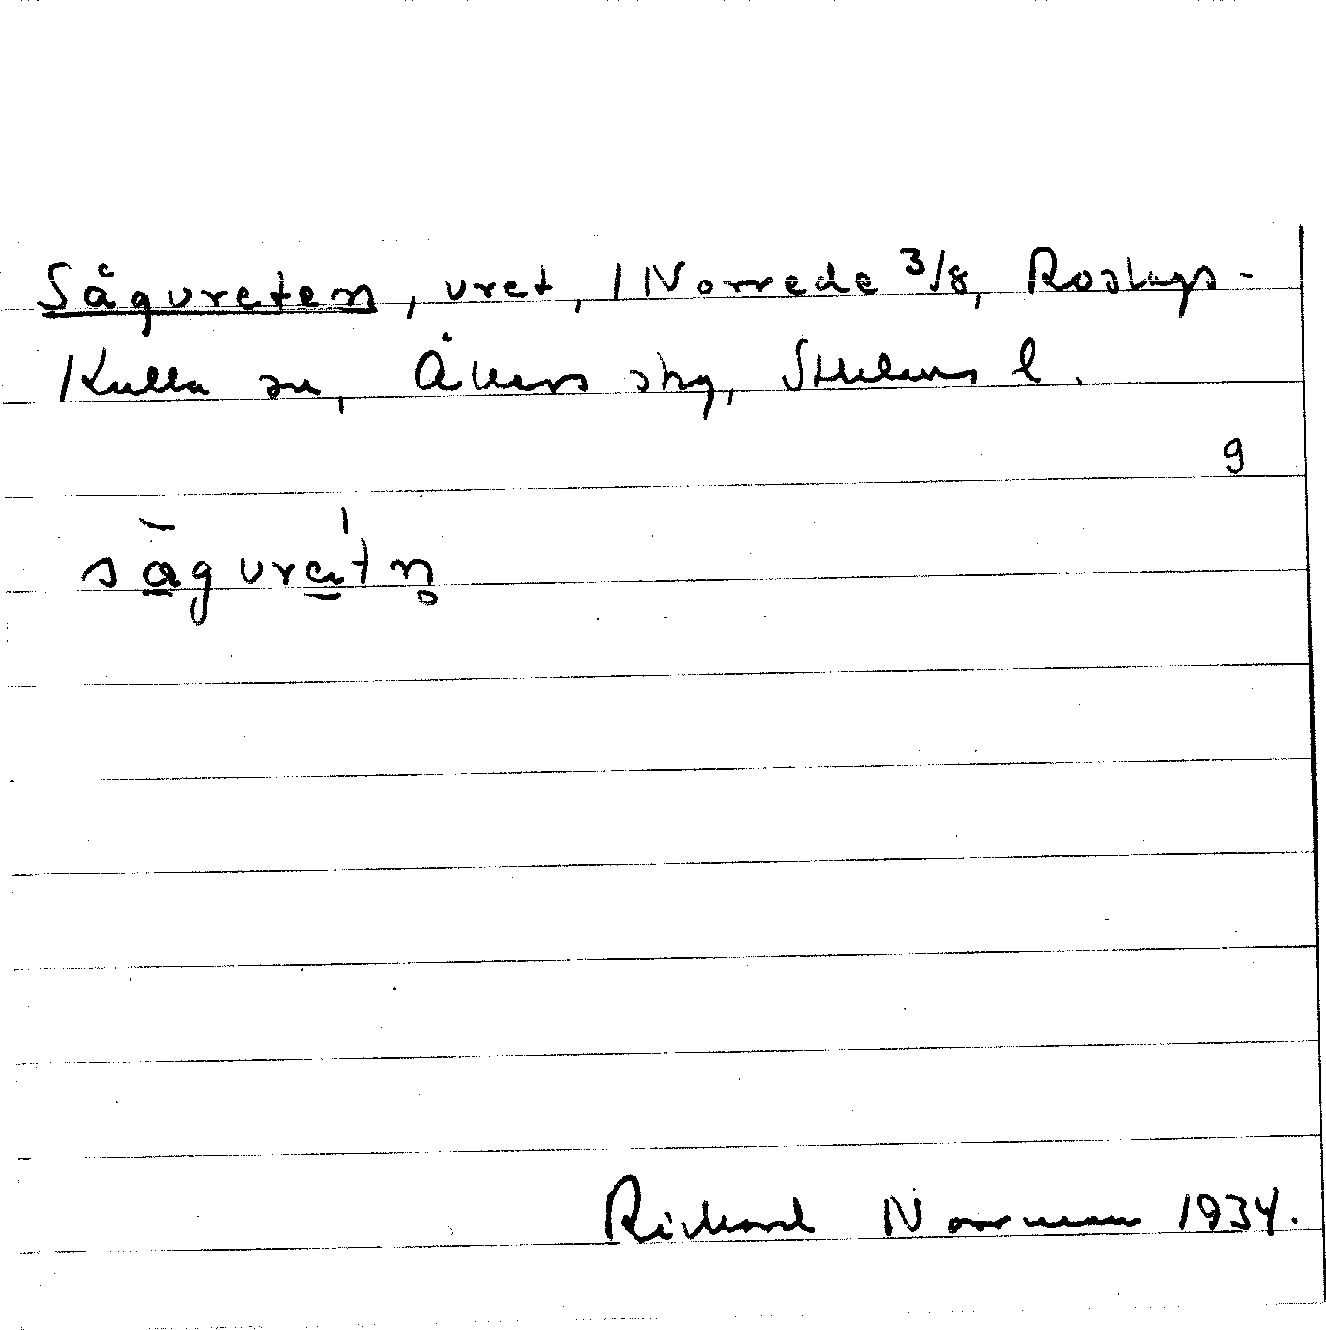 Sågvreten, vret, Norrede 3/8, Roslags-
Kulla sn, Åkers skg, Sthlms l.
9
sågvretn
Rickard Norrman 1934.